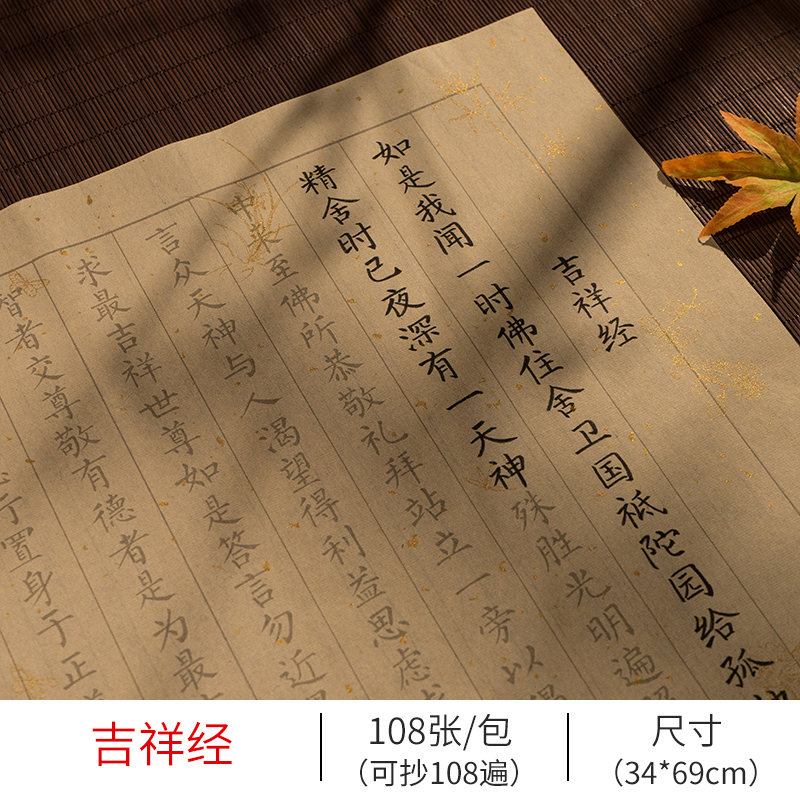 吉祥经
如是我闻一时佛住舍卫国祇陀园给孤
精舍时已夜深有一天神殊胜光明遍
中来至佛所恭敬礼拜站立一旁以
言众天神与人渴望得利益思虑
求最吉祥世尊如是答言勿近
智者交尊敬有德者是为最
置身于正
吉祥经
108张/包
（可抄108遍）
尺寸
（34*69cm）